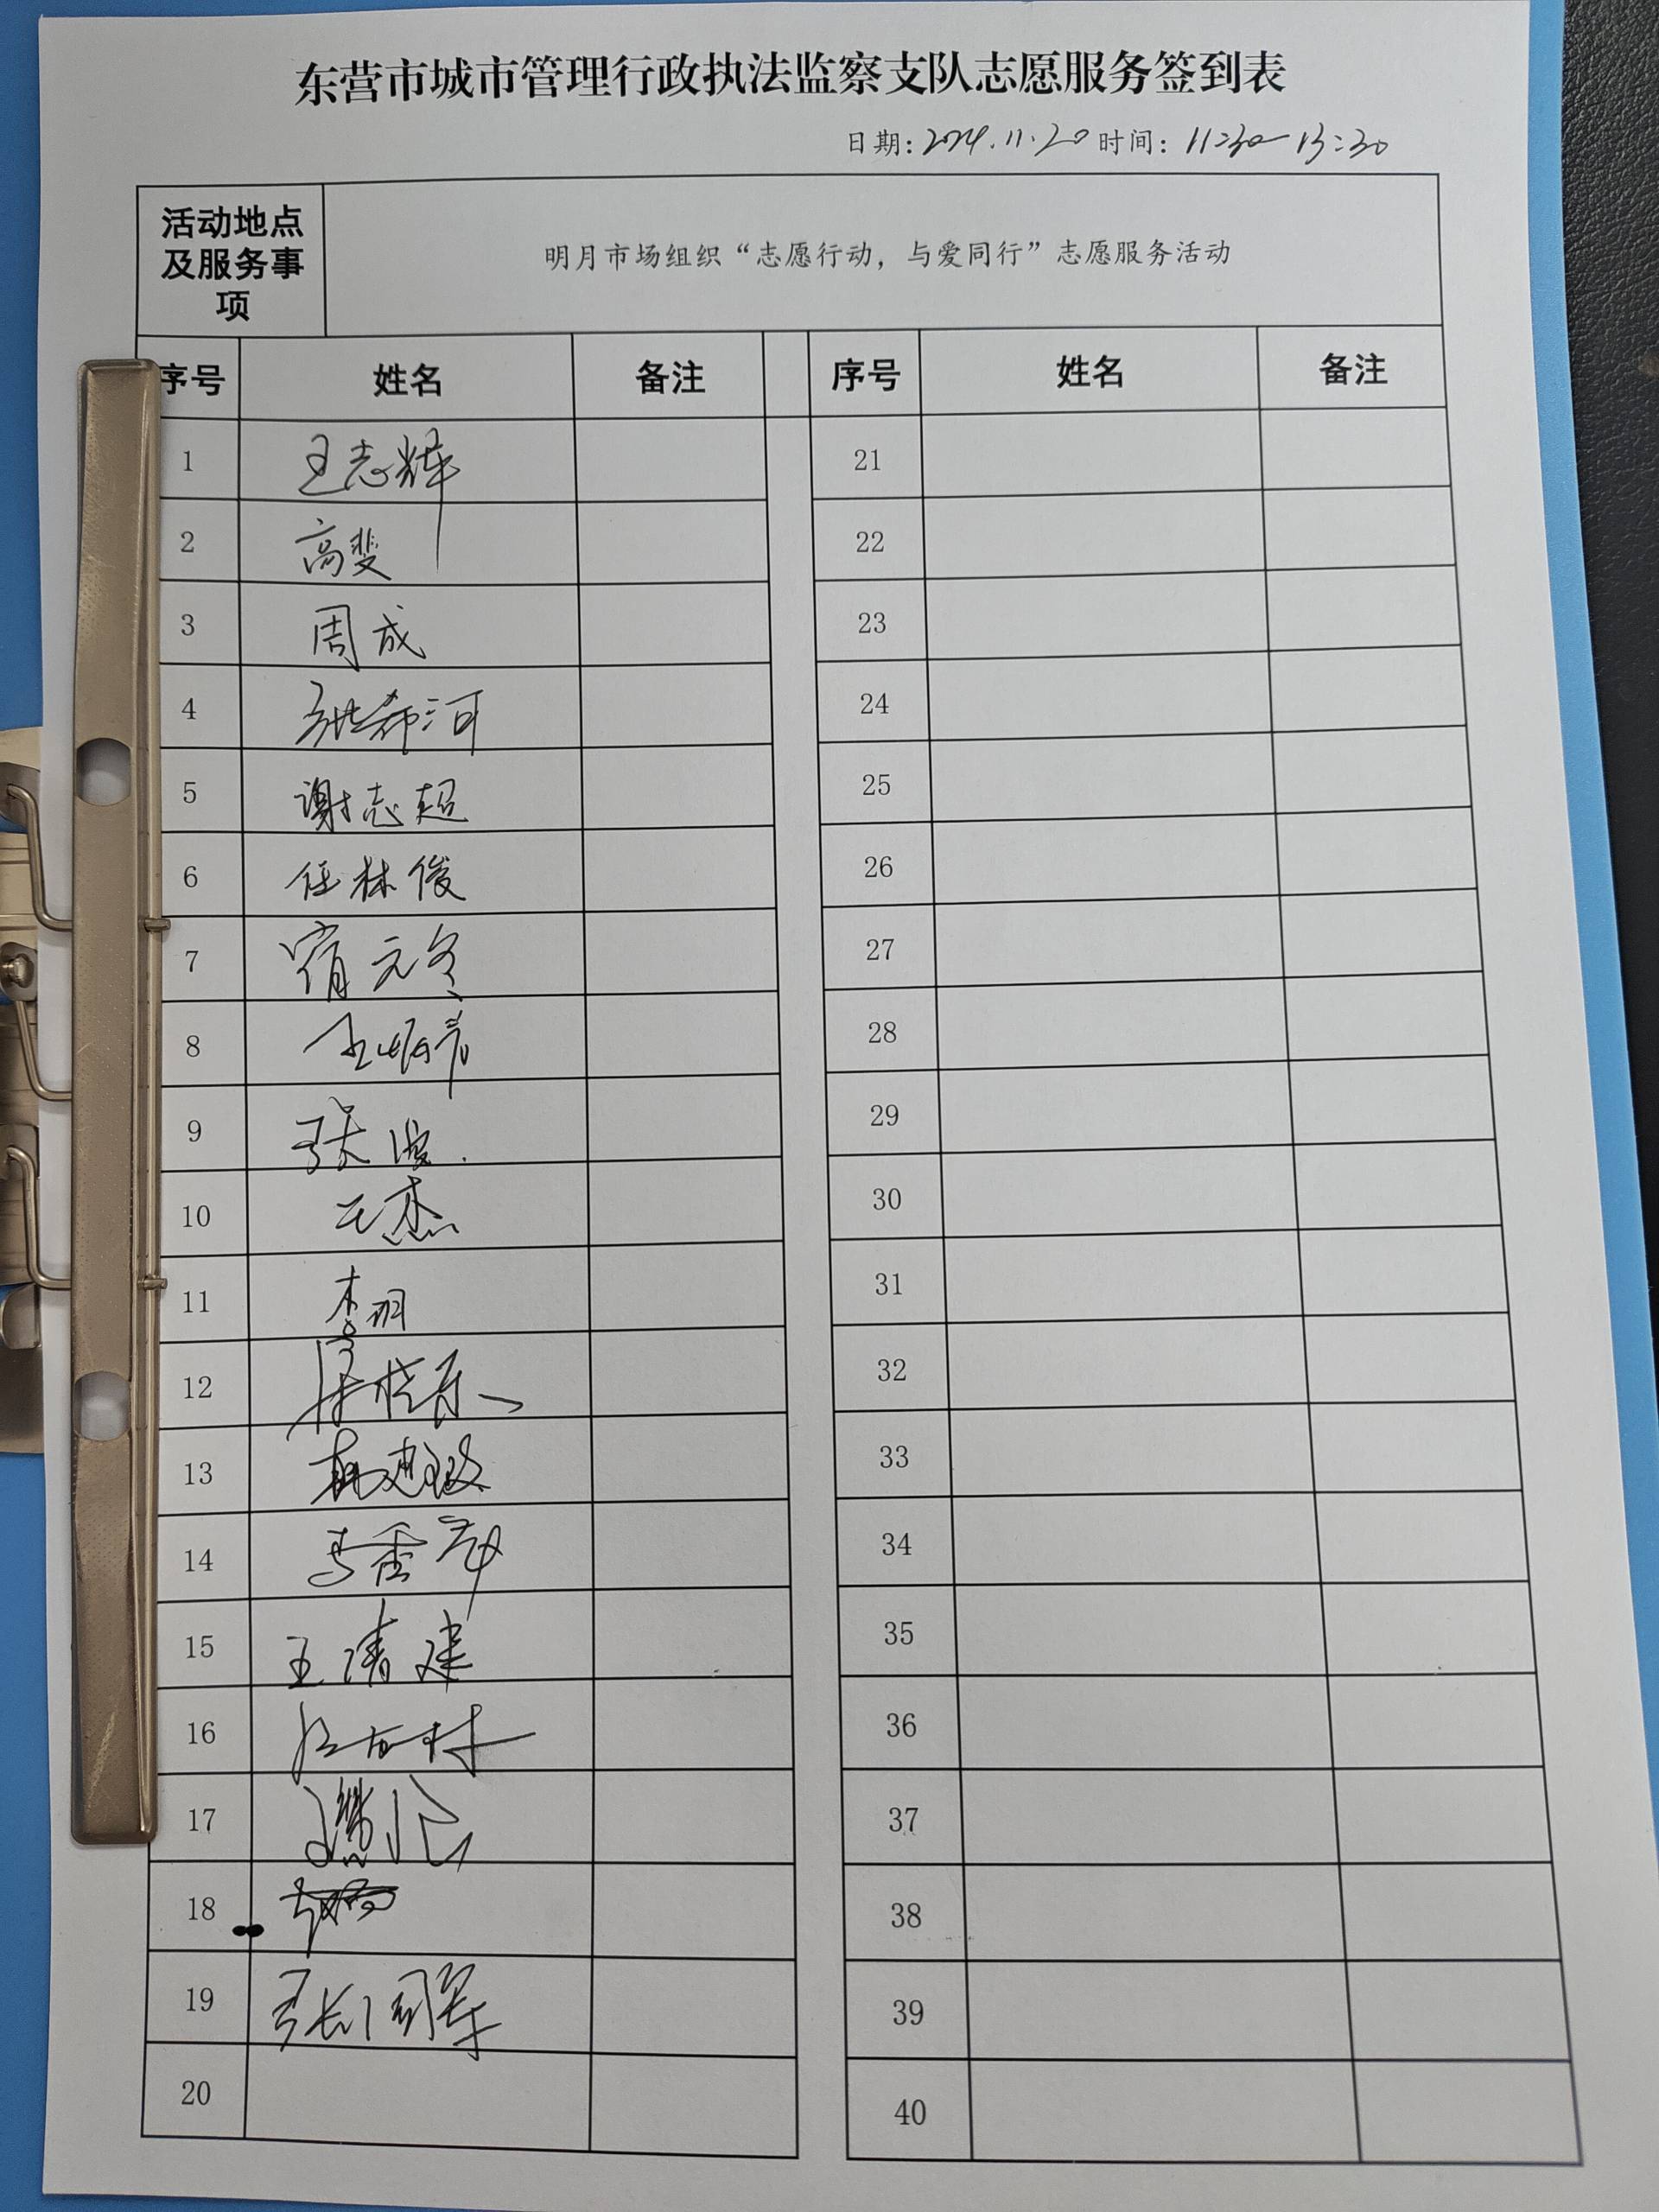 东营市城市管理行政执法监察支队志愿服务签到表
日期: 2024.11.20 时间: 11:30-13:30
活动地点及服务事项
明月市场组织“志愿行动，与爱同行”志愿服务活动
序号 姓名 备注 序号 姓名 备注
1 王志辉 21
2 高斐 22
3 周成 23
4 张希河 24
5 谢志超 25
6 任林俊 26
7 宿元冬 27
8 28
9 张波 29
10 王杰 30
11 李明 31
12 32
13 33
14 34
15 王清建 35
16 36
17 37
18 38
19 39
20 40